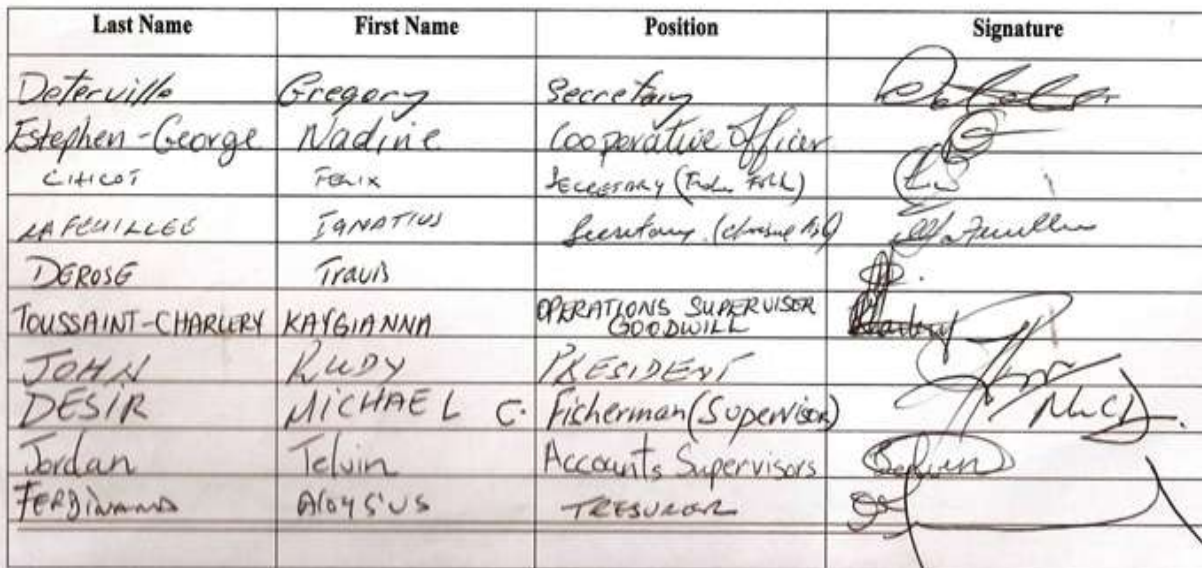 Last Name First Name Position Signature
Deterville Gregory Secretary
Estephen-George Nadine Cooperative Officer
CHICOT FELIX SECRETARY
LAFEUILLEE IGNATIUS Secretary
DEROSE Travis
TOUSSAINT-CHARLERY KAYGIANNA OPERATIONS SUPERVISOR
GOODWILL
JOHN RUDY PRESIDENT
DESIR MICHAEL C. Fisherman (Supervisor)
Jordan Telvin Accounts Supervisors
FERDINAND Aloysus TRESURER